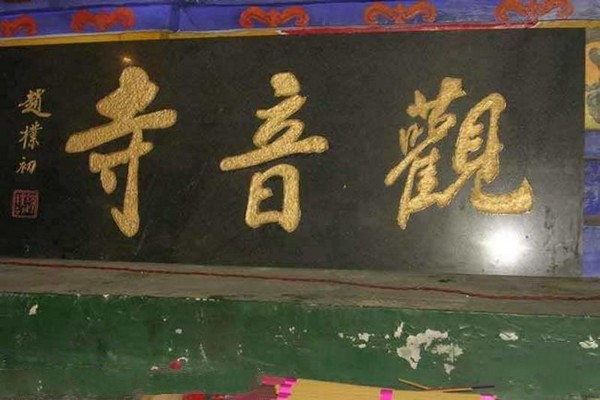 觀音寺
趙樸初